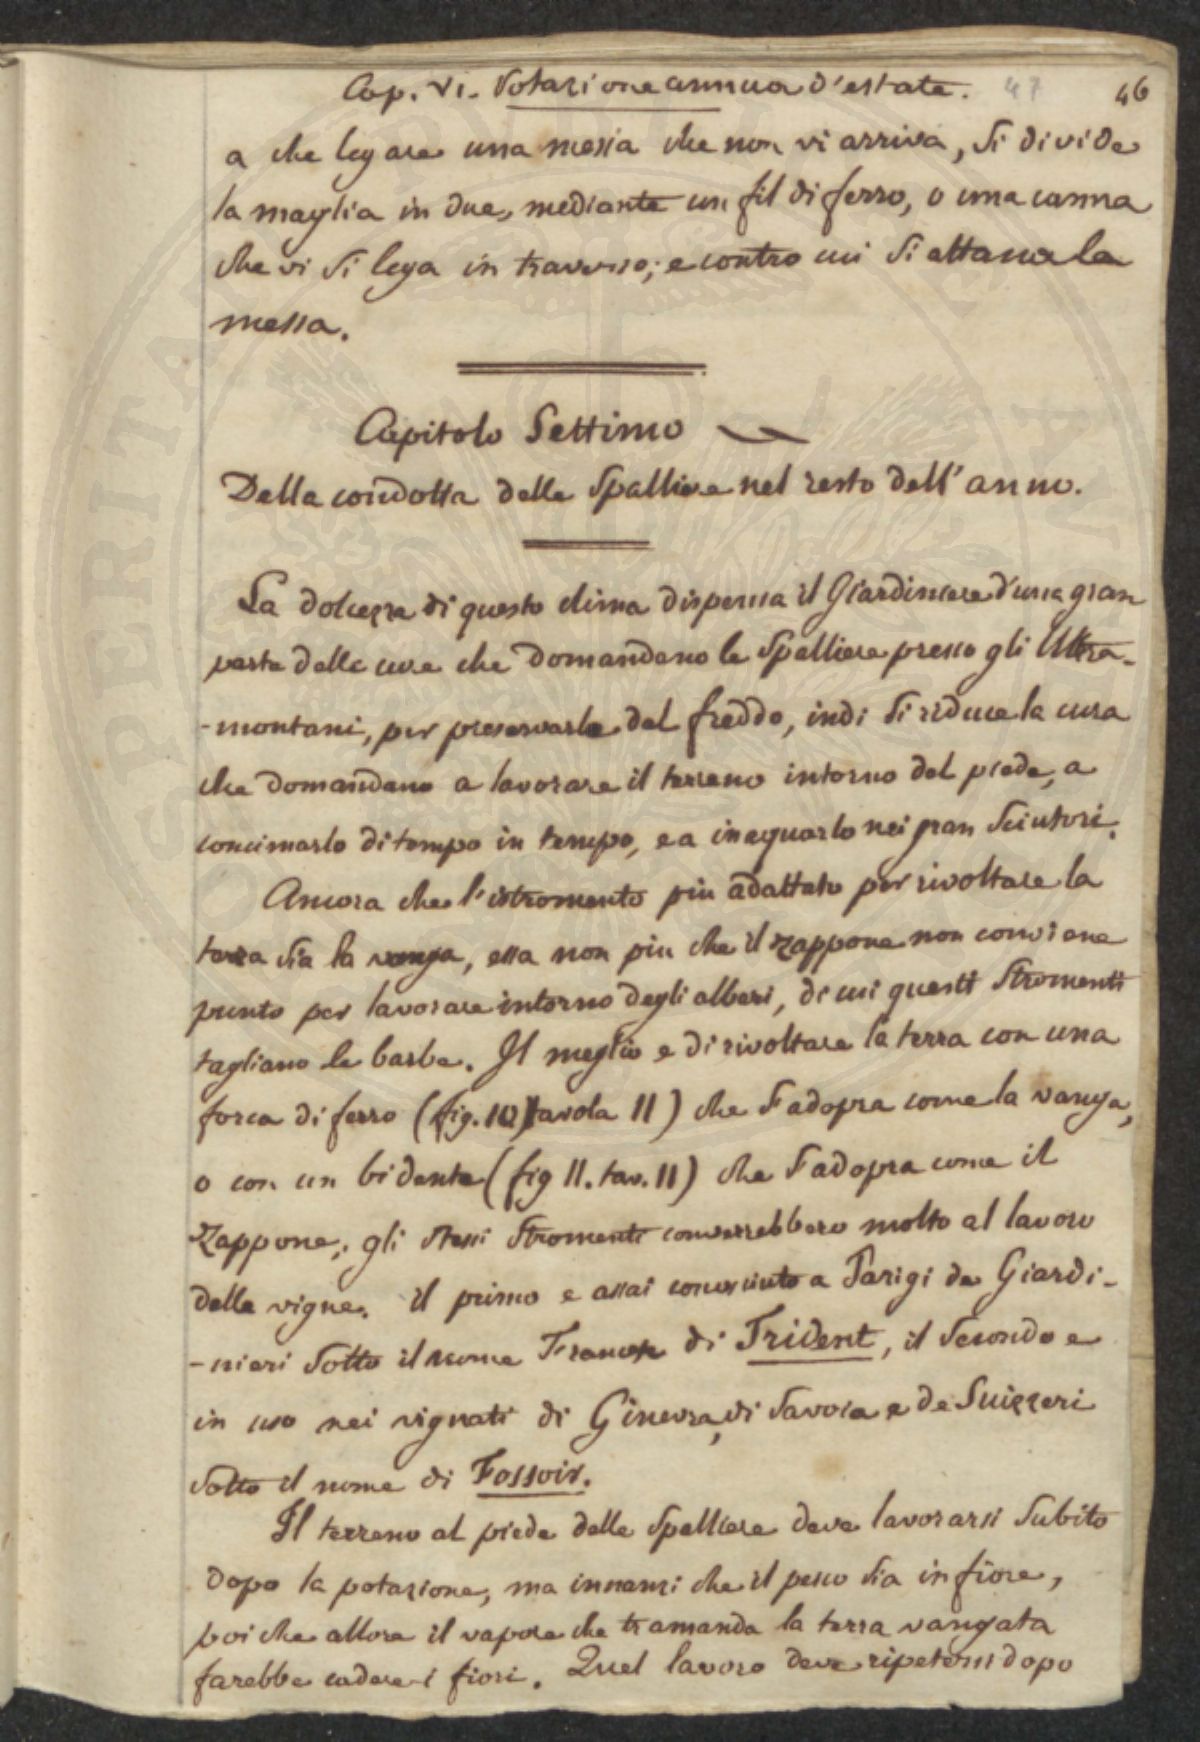 Cap. VI. Potazione annua d'estate. 47 46
a che legare una messa che non vi arriva, si divide
la maglia in due, mediante un fil di ferro, o una canna
che vi si lega in traverso; e contro cui si attacca la
messa.
Capitolo Settimo
Della condotta delle Spalliere nel resto dell'anno.
La dolcezza di questo clima dispensa il Giardiniere d'una gran
parte delle cure che domandano le Spalliere presso gli Ultra-
-montani, per preservarle dal freddo, indi si riduce la cura
che domandano a lavorare il terreno intorno del piede, a
concimarlo di tempo in tempo, e a inacquarlo nei gran sciutori.
Ancora che l'istromento piu adattato per rivoltare la
terra sia la vanga, essa non piu che il zappone non conviene
punto per lavorare intorno degli alberi, di cui questi stromenti
tagliano le barbe. Il meglio e di rivoltare la terra con una
forca di ferro (fig. 10 tavola 11) che s'adopra come la vanga,
o con un bidente (fig 11. tav. 11) che s'adopra come il
Zappone; gli stessi stromenti converrebbero molto al lavoro
delle vigne. il primo e assai conosciuto a Parigi da Giardi-
-nieri sotto il nome Francese di Trident, il secondo e
in uso nei vignati di Ginevra, di Savoia e de Suizzeri
sotto il nome di Fossoir.
Il terreno al piede delle Spalliere deve lavorarsi subito
dopo la potazione, ma innanzi che il pesco sia in fiore,
poi che allora il vapore che tramanda la terra vangata
farebbe cadere i fiori. Quel lavoro deve ripetersi dopo
PROSPERITATI PUBLICAE AUGENDAE